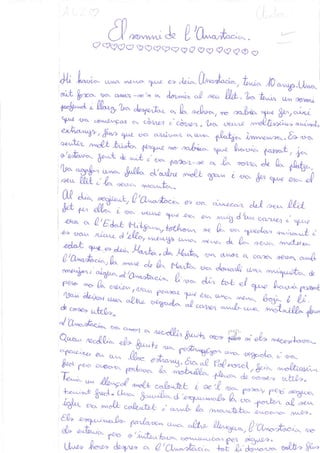 El somni de l'Anastacia.
Hi havia una nena que es deia l'Anastacia, tenia 10 anys. Una
nit fosca va anar-se'n a dormir al seu llit. Va tenir un somni
profund i llarg. Va despertar a la selva, no sabia que fer, així
que va començar a córrer i córrer. Va veure moltíssims animals
extranys, fins que va arrivar a una platja inmensa. Es va
sentir molt trista perque no sabia que havia passat, ja
s'estava fent de nit i va posar-se a la sorra de la platja.
Va agafar una fulla d'arbre molt gran i va fer que era el
seu llit i la seva manta.
Al dia següent, l'Anastacia es va aixecar del seu llit
fet per ella i va veure que era en mig d'un carrer i que
era a l'Edat Mitjana, tothom se la va quedar mirant i
es van riure d'ella, menys una nena de la seva mateixa
edat que es deia Marta. La Marta va anar a casa seva amb
l'Anastacia, la mare de la Marta va donarli una miqueta de
menjar i aigua a l'Anastacia. Li va dir tot el que havia passat
pero no la creien, van pensar que era una nena boja. I li
van deixar una altre vegada al carrer amb una motxilla plena
de coses utils.
L'Anastacia va anar a recollir fruits per si els necessitava.
Quan recollia els fruits va
apareixer en un lloc estrany. Era al Pol nord, feia moltissim
fret pero encara portava la motxilla plena de coses utils.
Tenia un llençol molt calentet i se'l va posar, pero seguia
tenint fred. Una familia d'esquimals la va portar al seu
iglú va molt calentet i amb la manteta encara més.
Els esquimals parlaven una altre llengua, l'Anastacia no
els entenia pero s'intentava comunicar per signes.
Unes hores després a l'Anastacia tot li donava voltes fins